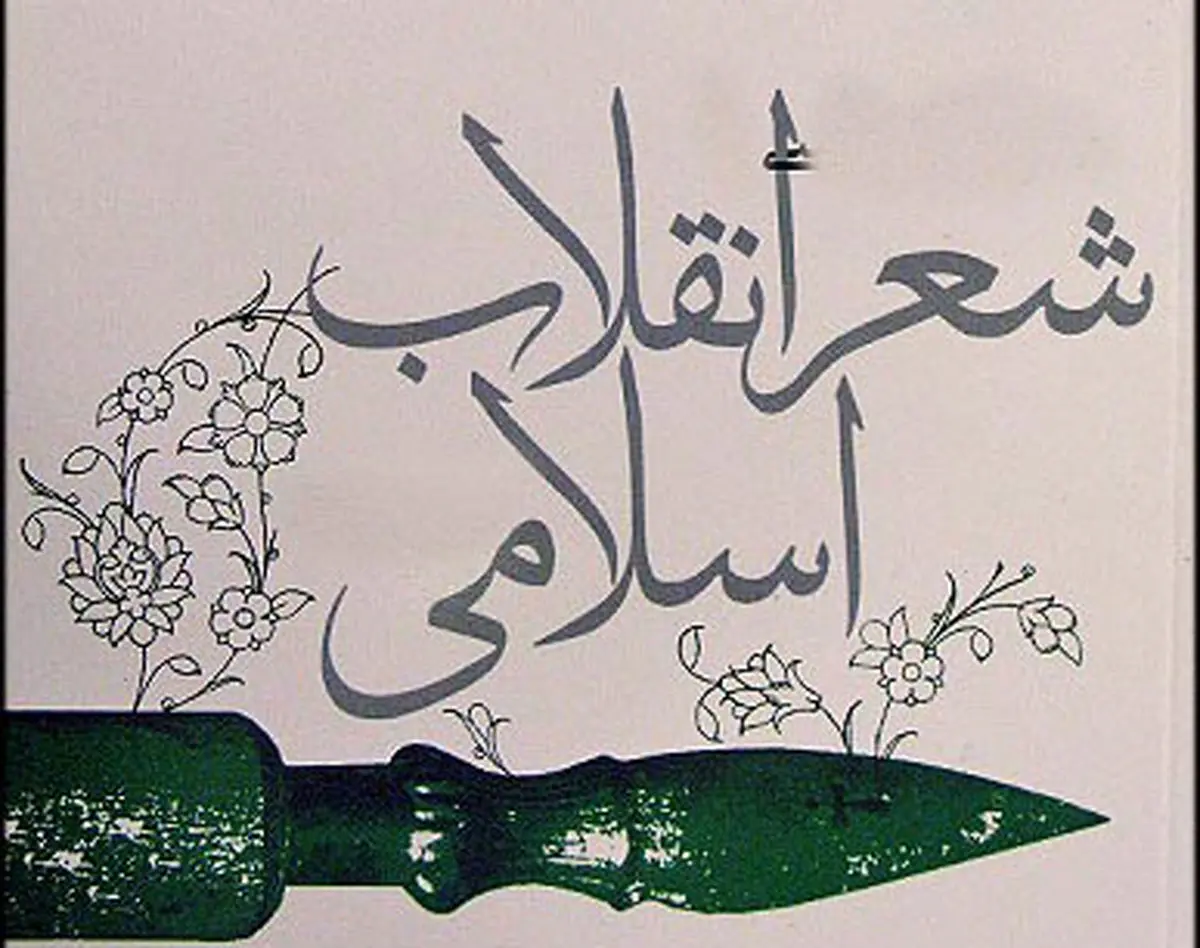 شعر أنقلاب
اسلامی